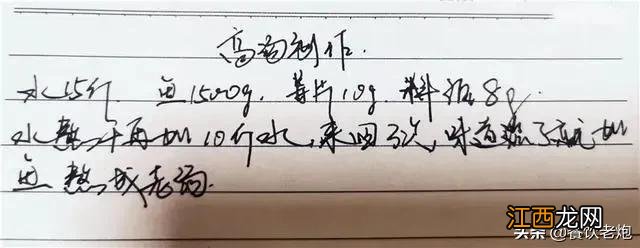 高汤制作.
水15斤. 鱼1500g. 姜片10g. 料酒8g
水熬一半再加10斤水,来回3次,味道淡了就加
鱼 熬成老汤.
江西龙网
头条 @餐饮老炮